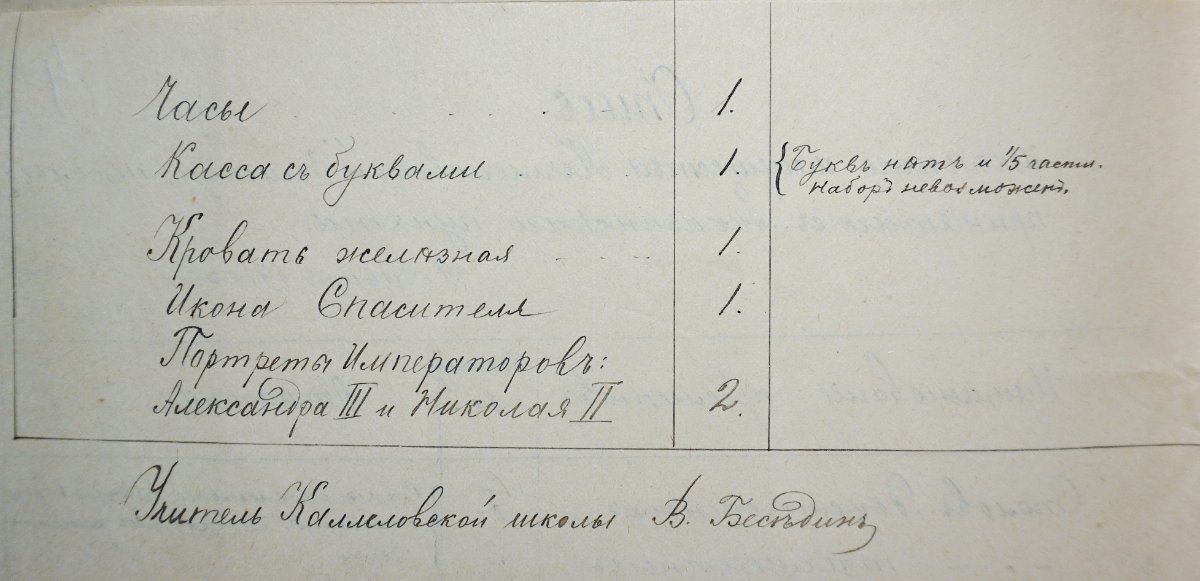 Часы 1.
Касса съ буквами 1. {Буквъ нѣтъ и 1/5 части.
Наборъ невозможенъ.
Кровать желѣзная 1.
Икона Спасителя 1.
Портреты Императоровъ:
Александра III и Николая II 2.
Учитель школы В. Бесѣдинъ